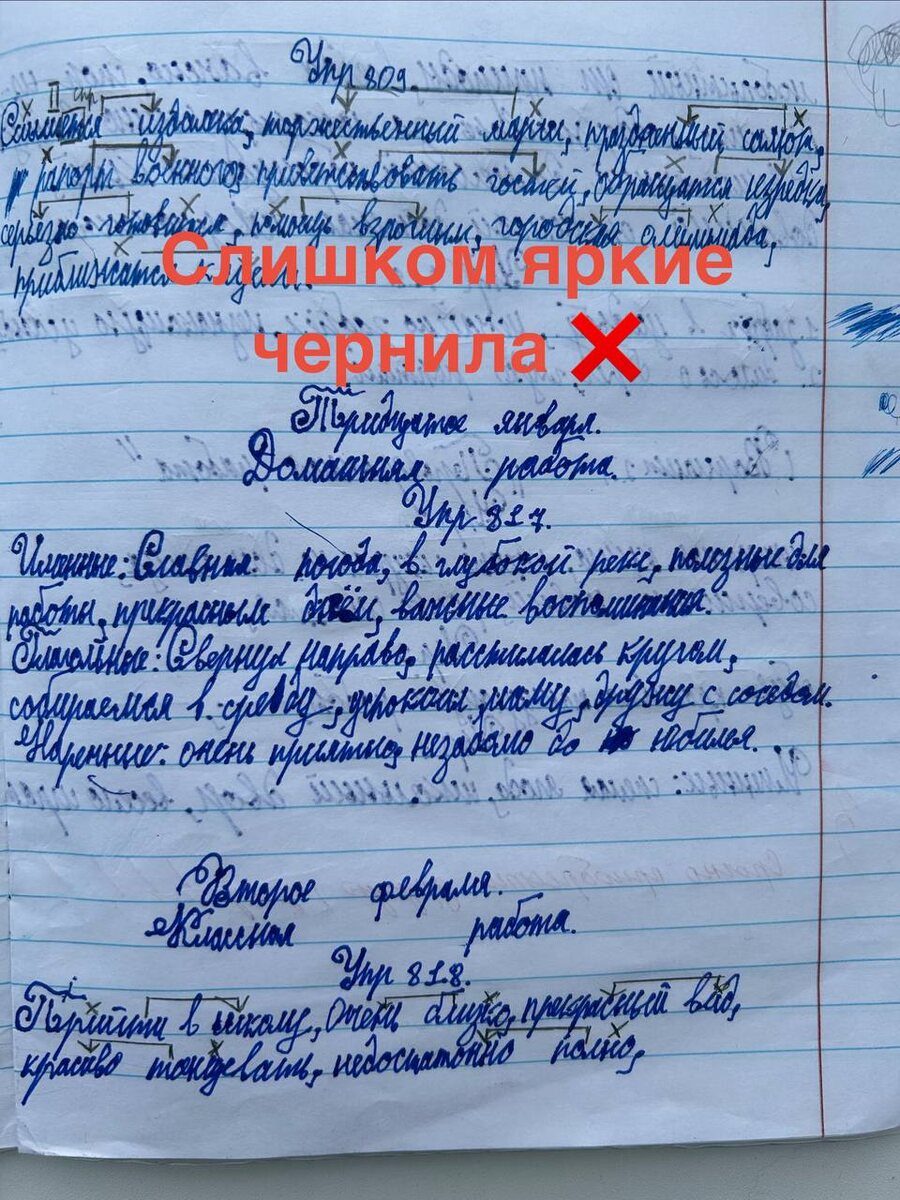 Упр 809.
II спр
издалека, торжественный марш, праздничный салюта,
рапорт военного, приветствовать гостей, обращается изредка,
серьёзно готовится, помощь взрослым, городская олимпиада,
приближаться к цели.
Слишком яркие
чернила ❌
Тридцатое января.
Домашняя работа.
Упр 817.
Именные: Славная погода, в глубокой реке, полезные для
работы, прекрасным днём, важные воспоминания.
Глагольные: Свернул направо, расстилалась кругом,
собираемся в среду, успокоил маму, дружу с соседом.
Наречные: очень приятно, незадолго до юбилея.
Второе февраля.
Классная работа.
Упр 818.
Прийти в школу, Очень близко, прекрасный вид,
красиво танцевать, недостаточно полно,